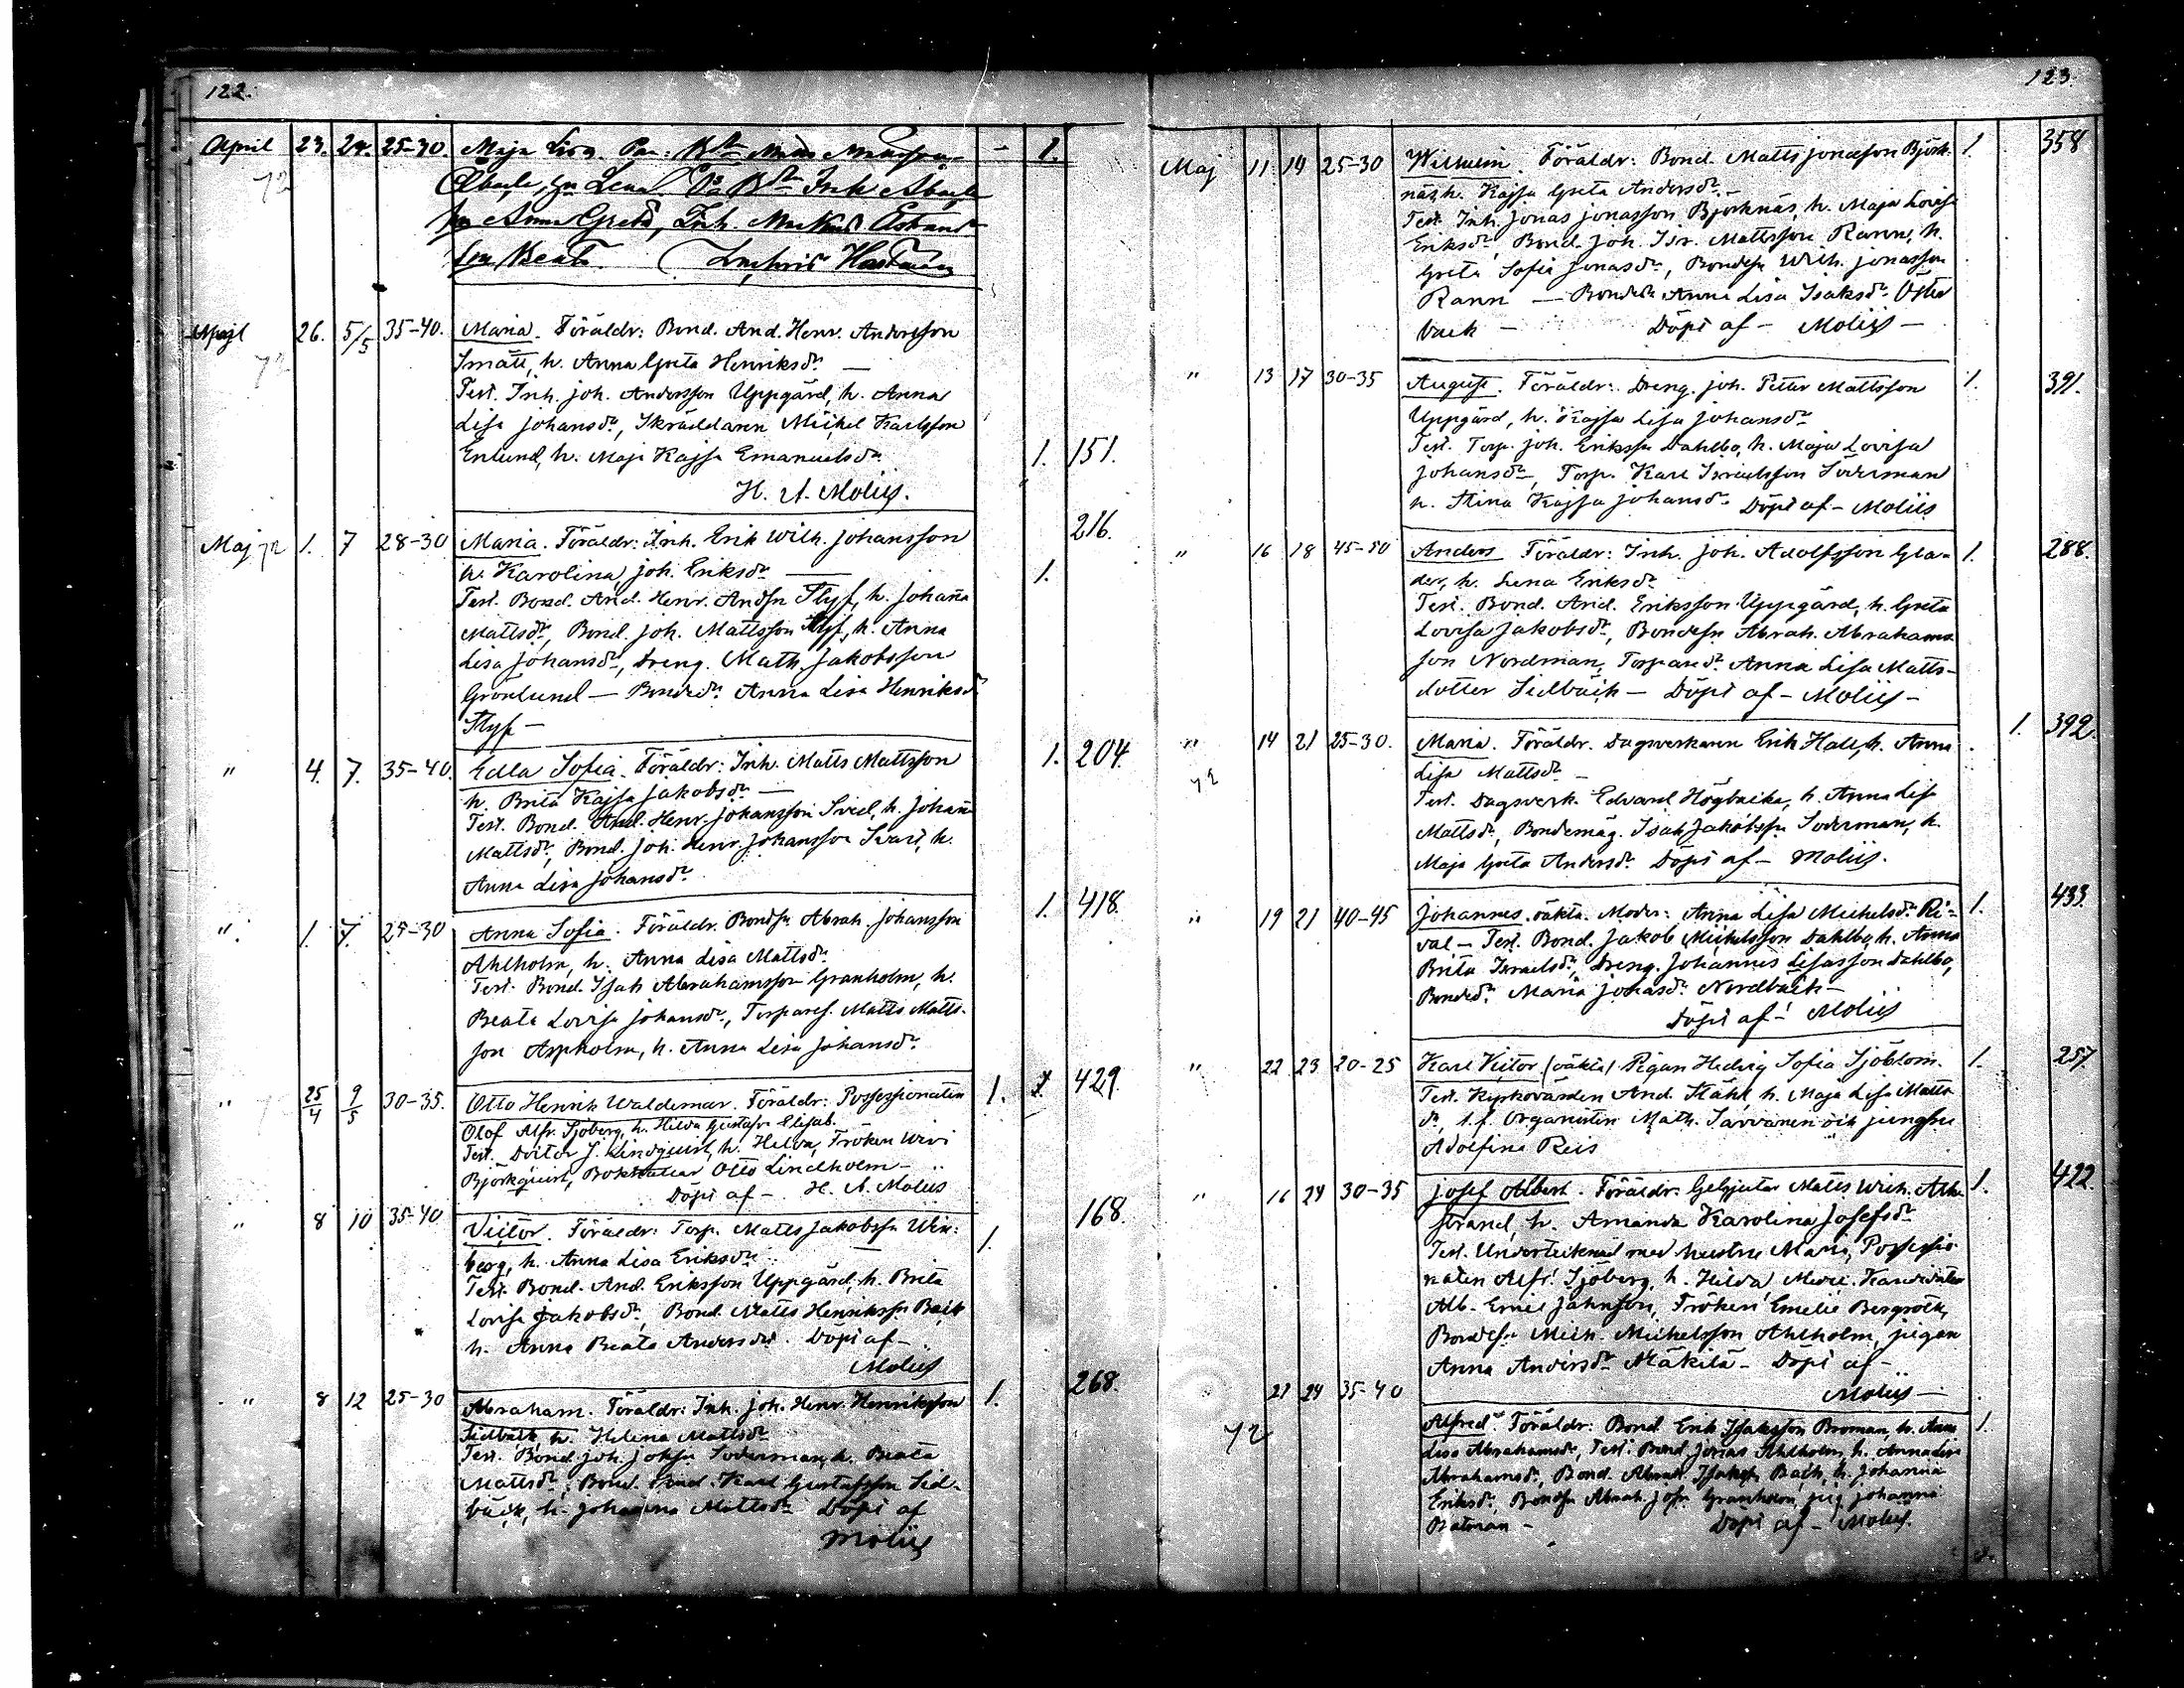 122.
April 23. 24. 25-30. Maja Lisa. 1.
72
hu Anna Greta, Inh.
hu Beata.
26. 5/5 35-40. Maria. Föräldr: Bond. And. Henr. Andersson
72 Smått, h. Anna Greta Henriksdr. —
Test. Inh. Joh. Andersson Uppgård, h. Anna
Lisa Johansdr, Skräddaren Michel Karlsson
Enlund, h. Maja Kajsa Emanuelsdr. 1. 151.
H. A. Moliis.
216.
Maj 72 1. 7 28-30 Maria. Föräldr: Inh. Erik Wilh. Johansson
h. Karolina, Joh. Eriksdr — 1.
Test. Bond. And. Henr. Andsn Flyf, h. Johaña
Mattsdr, Bond. Joh. Mattsson h. Anna
Lisa Johansdr, Dreng. Math. Jakobsson
Grönlund — Bondedr. Anna Lisa Henriksdr
Flyf —
" 4. 7. 35-40. Edla Sofia. Föräldr: Inh. Matts Mattsson 1. 204.
h. Brita Kajsa Jakobsdr —
Test. Bond. And. Henr. Johansson Sved, h. Johaña
Mattsdr, Bond. Joh. Henr. Johansson Svart, h.
Anna Lisa Johansdr.
". 1. 7. 25-30 Anna Sofia. Föräldr. Bondsn Abrah. Johansson 1. 418.
Ahlholm, h. Anna Lisa Mattsdr.
Test. Bond. Isak Abrahamsson Granholm, h.
Beata Lovisa Johansdr, Torparef. Matts Matts-
son Aspholm, h. Anna Lisa Johansdr.
" 25/4 9/5 30-35. Otto Henrik Waldemar. Föräldr: Possessionaten 1. 429.
Olof Alfr. Sjöberg, h. Hilda Gustafva Elisab.
Test. Doctor J. Lindquist, h. Hilda, Fröken Wivi
Björkquist, Bokhållar Otto Lindholm —
Döpt af — H. A. Moliis
" 8 10 35-40 Victor. Föräldr: Torp. Matts Jakobssn Win- 1. 168.
berg, h. Anna Lisa Eriksdr. —
Test. Bond. And. Eriksson Uppgård, h. Brita
Lovisa Jakobsdr, Bond. Matts Henrikssn Back
h. Anna Beata Andersdr. Döpt af —
Moliis
" 8 12 25-30 Abraham. Föräldr: Inh. Joh. Henr. Henriksson 1. 268.
Sidbäck, h. Helena Mattsdr.
Test. Bond. Joh. Söderman, h. Beata
Mattsdr, Bond. Karl Gustafsson Sid-
bäck, h. Johanna Mattsdr. Döpt af
Moliis
123.
Maj 11 14 25-30 Wilhelm. Föräldr: Bond. Matts Jonasson Björk- 1. 358
näs, h. Kajsa Greta Andersdr. —
Test. Inh. Jonas Jonasson Björknäs, h. Maja Lovisa
Eriksdr, Bond. Joh. Isr. Mattsson Rann, h.
Greta Sofia Jonasdr, Bondesn Wilh. Jonasson
Rann — Bondedr. Anna Lisa Isaksdr. Öster
back — Döpt af — Moliis —
" 13 17 30-35 August. Föräldr: Dreng. Joh. Petter Mattsson 1. 391.
Uppgård, h. Kajsa Lisa Johansdr.
Test. Torp. Joh. Erikssn Dahlbo, h. Maja Lovisa
Johansdr, Torp. Karl Israelsson Söderman
h. Stina Kajsa Johansdr. Döpt af — Moliis
" 16 18 45-50 Anders. Föräldr: Inh. Joh. Adolfsson Gla- 1. 288.
der, h. Lena Eriksdr.
Test. Bond. And. Eriksson Uppgård, h. Greta
Lovisa Jakobsdr, Bondesn Abrah. Abrahams-
son Nordman, Torparedr. Anna Lisa Matts-
dotter Sidbäck — Döpt af — Moliis —
" 14 21 25-30. Maria. Föräldr. Dagsverkaren Erik Hall, h. Anna 1. 392.
72 Lisa Mattsdr. —
Test. Dagsverk. Edvard Högbacka, h. Anna Lisa
Mattsdr, Bondemåg. Isak Jakobssn Söderman, h.
Maja Greta Andersdr. Döpt af — Moliis.
" 19 21 40-45 Johannes, oäkta. Moder: Anna Lisa Michelsdr. Ri- 1. 433.
val — Test. Bond. Jakob Michelsson Dahlbo, h. Anna
Brita Israelsdr, Dreng. Johannes Lisasson Dahlbo,
Bondedr. Maria Jonasdr. Nordbäck —
Döpt af — Moliis
" 22 23 20-25 Karl Victor (oäkta) Pigan Hedvig Sofia Sjöblom. 1. 257.
Test. Kyrkovärden And. Ståhl, h. Maja Lisa Matts-
dr, t.f. Organisten Math. Savvanen och jungfru
Adolfina Reis
" 16 24 30-35 Josef Albert. Föräldr: Gelbjutar Matts Wilh. Ahl- 1. 422.
strand, h. Amanda Karolina Josefsdr.
Test. Undertecknad med hustru Maria, Possessio-
naten Alfr. Sjöberg, h. Hilda Medic. Kandidaten
Alb. Emil Johnsson, Fröken Emelie Bergroth,
Bondesn Mich. Michelsson Ahlholm, pigan
Anna Andersdr. Mäkilä — Döpt af —
Moliis —
21 24 35-40 Alfred. Föräldr: Bond. Erik Isaksson Broman, h. Anna 1.
72 Lisa Abrahamsdr, Test. Bond. Jonas Ahlholm, h. Anna Lisa
Abrahamsdr, Bond. Abrah. Isakssn Back, h. Johanna
Eriksdr, Bondsn Abrah. Granholm, pig. Johanna
Döpt af — Moliis.